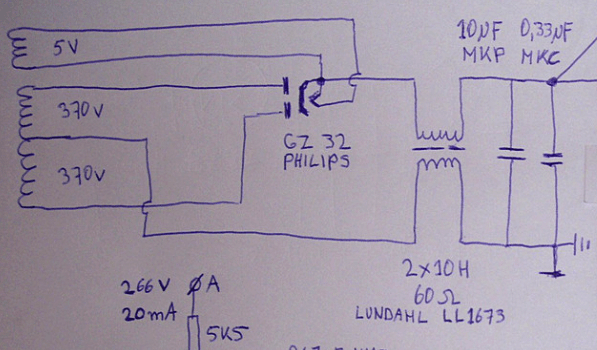 5V
10µF 0,33µF
MKP MKC
370V
GZ 32
PHILIPS
370V
2x10H
60Ω
LUNDAHL LL1673
266V A
20mA
5K5